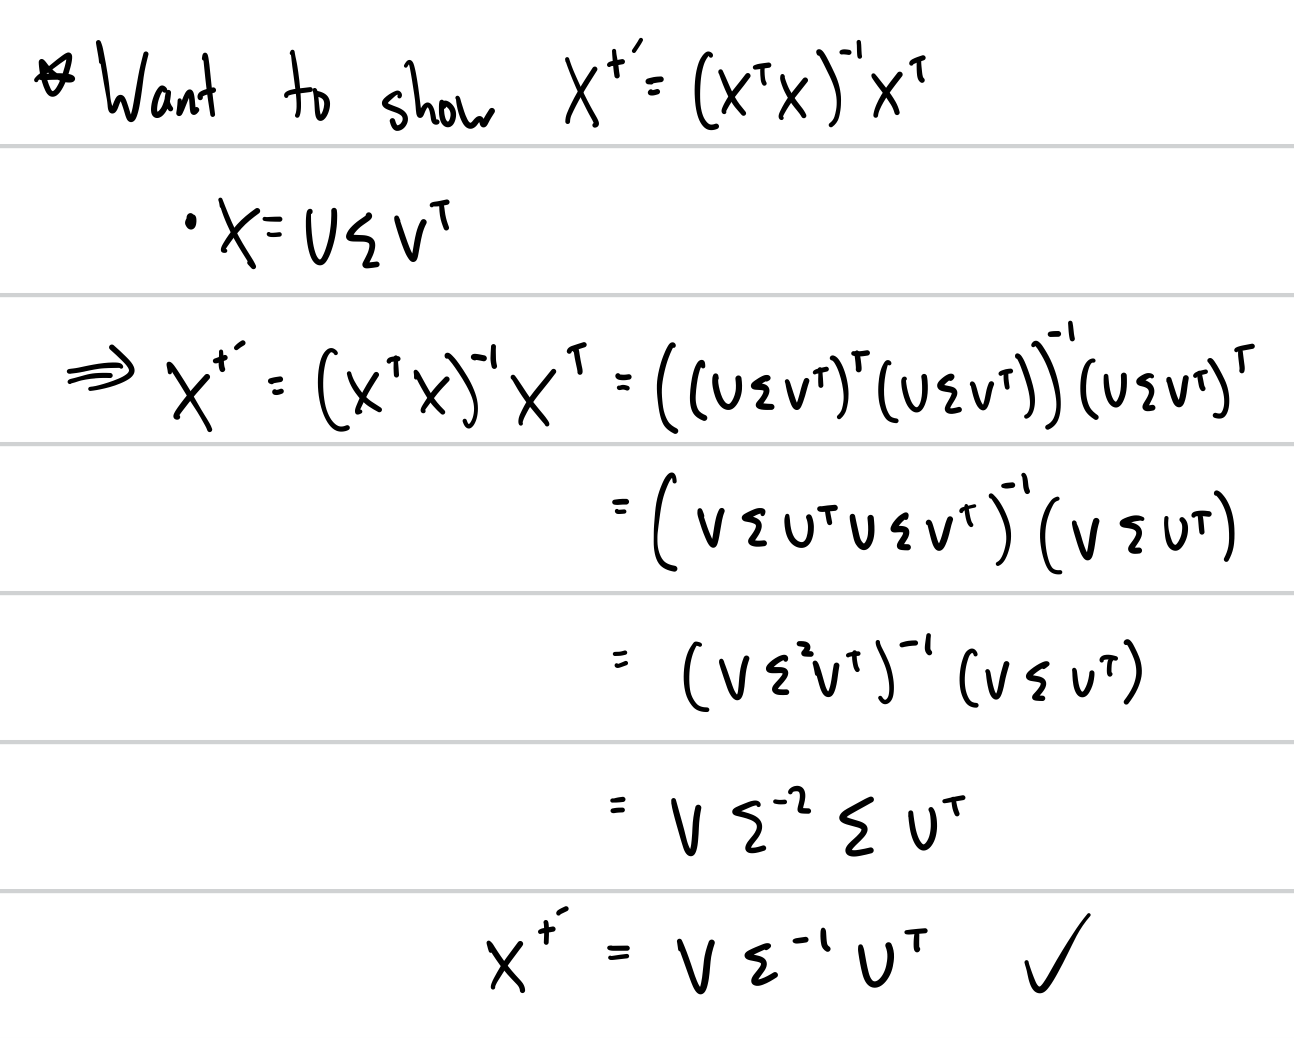 ☆ Want to show X⁺′ = (XᵀX)⁻¹Xᵀ
• X = UΣVᵀ
⇒ X⁺′ = (XᵀX)⁻¹Xᵀ = ((UΣVᵀ)ᵀ(UΣVᵀ))⁻¹(UΣVᵀ)ᵀ
= (VΣUᵀUΣVᵀ)⁻¹(VΣUᵀ)
= (VΣ²Vᵀ)⁻¹(VΣUᵀ)
= VΣ⁻²ΣUᵀ
X⁺′ = VΣ⁻¹Uᵀ ✓